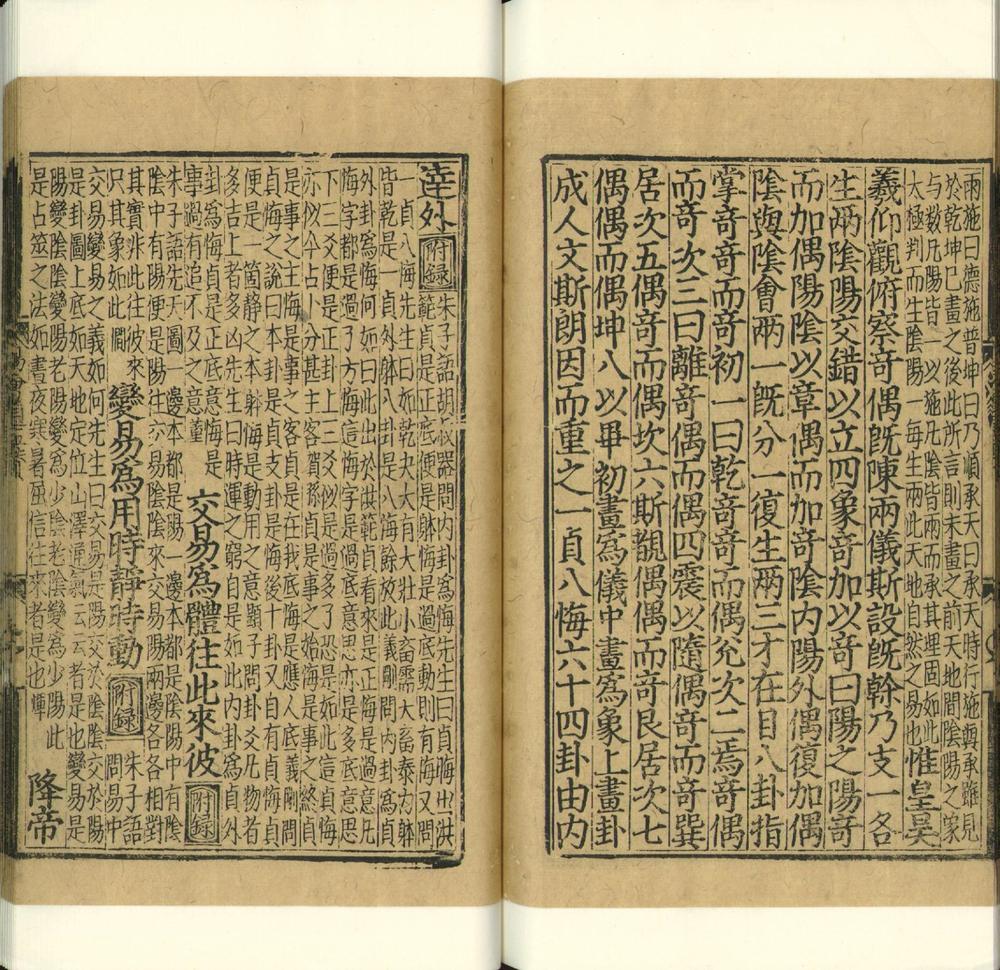 兩施曰德施普坤曰乃順承天曰承天時行施與承雖見
於乾坤已畫之後此所言則未畫之前天地間陰陽之象
与数凡陽皆一以施凡陰皆兩而承其理固如此
太極判而生陰陽一每生兩此天地自然之易也
惟皇昊
羲仰觀俯察奇偶旣陳兩儀斯設旣幹乃支一各
生兩陰陽交錯以立四象奇加以奇曰陽之陽奇
而加偶陽陰以章偶而加奇陰内陽外偶復加偶
陰與陰會兩一旣分一復生兩三才在目八卦指
掌奇奇而奇初一曰乾奇奇而偶兊次二焉奇偶
而奇次三曰離奇偶而偶四震以隨偶奇而奇巽
居次五偶奇而偶坎六斯覩偶偶而奇艮居次七
偶偶而偶坤八以畢初畫爲儀中畫爲象上畫卦
成人文斯朗因而重之一貞八悔六十四卦由内
達外
附録
朱子語胡叔器問内卦爲悔先生曰貞晦出洪
範貞是正底便是躰悔是過底動則有悔又問
一貞八悔先生曰如乾夬大有大壯小畜需大畜泰内躰
皆乾是一貞外躰八卦是八悔餘放此義剛問内卦爲貞
外卦爲悔何如曰此出於洪範貞看來是正悔是過意凡
悔字都是過了方悔這悔字是過底意思亦是多底意思
下三爻便是正卦上三爻似是過多了恐是如此這貞悔
亦似今占卜分甚主客賀孫貞是事之始悔是事之終貞
是事之主悔是事之客貞是在我底悔是應人底義剛問
貞悔之說曰本卦是貞之卦是悔後十卦又自有貞悔貞
便是一箇静之本躰悔是動用之意顯子問卦爻凡物者
多吉上者多凶先生曰時運之窮自是如此内卦爲貞外
卦爲悔貞是正底意悔是
事過有追不及之意
交易爲體往此來彼
附録
朱子語先天圖一邊本都是陽一邊本都是陰陽中有陰
陰中有陽便是陽往交易陰陰來交易陽兩邊各各相對
其實非此往彼來
只其象如此
變易爲用時靜時動
附録
朱子語
問易中
交易變易之義如何先生曰交易是陽交於陰陰交於陽
是卦圖上底如天地定位山澤通氣云云者是也變易是
陽變陰陰變陽老陽變爲少陰老陰變爲少陽此
是占筮之法如晝夜寒暑屈信往來者是也
降帝